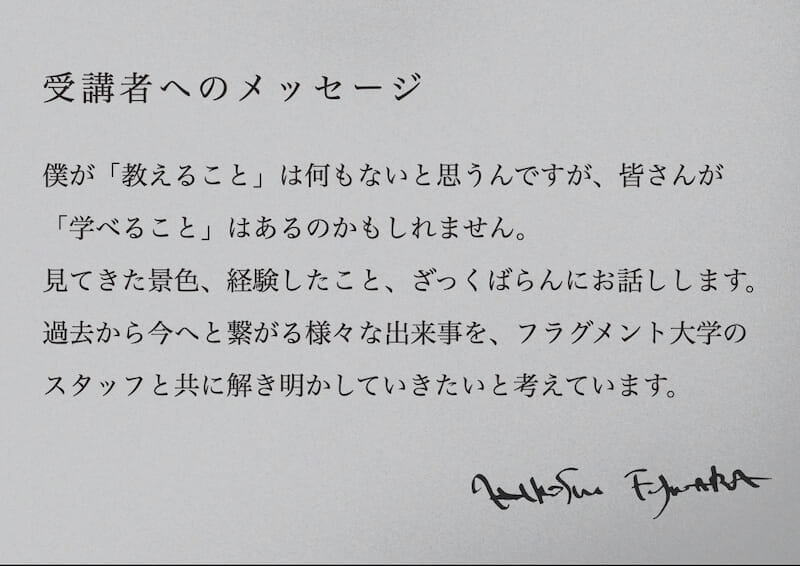 受講者へのメッセージ
僕が「教えること」は何もないと思うんですが、皆さんが
「学べること」はあるのかもしれません。
見てきた景色、経験したこと、ざっくばらんにお話しします。
過去から今へと繋がる様々な出来事を、フラグメント大学の
スタッフと共に解き明かしていきたいと考えています。